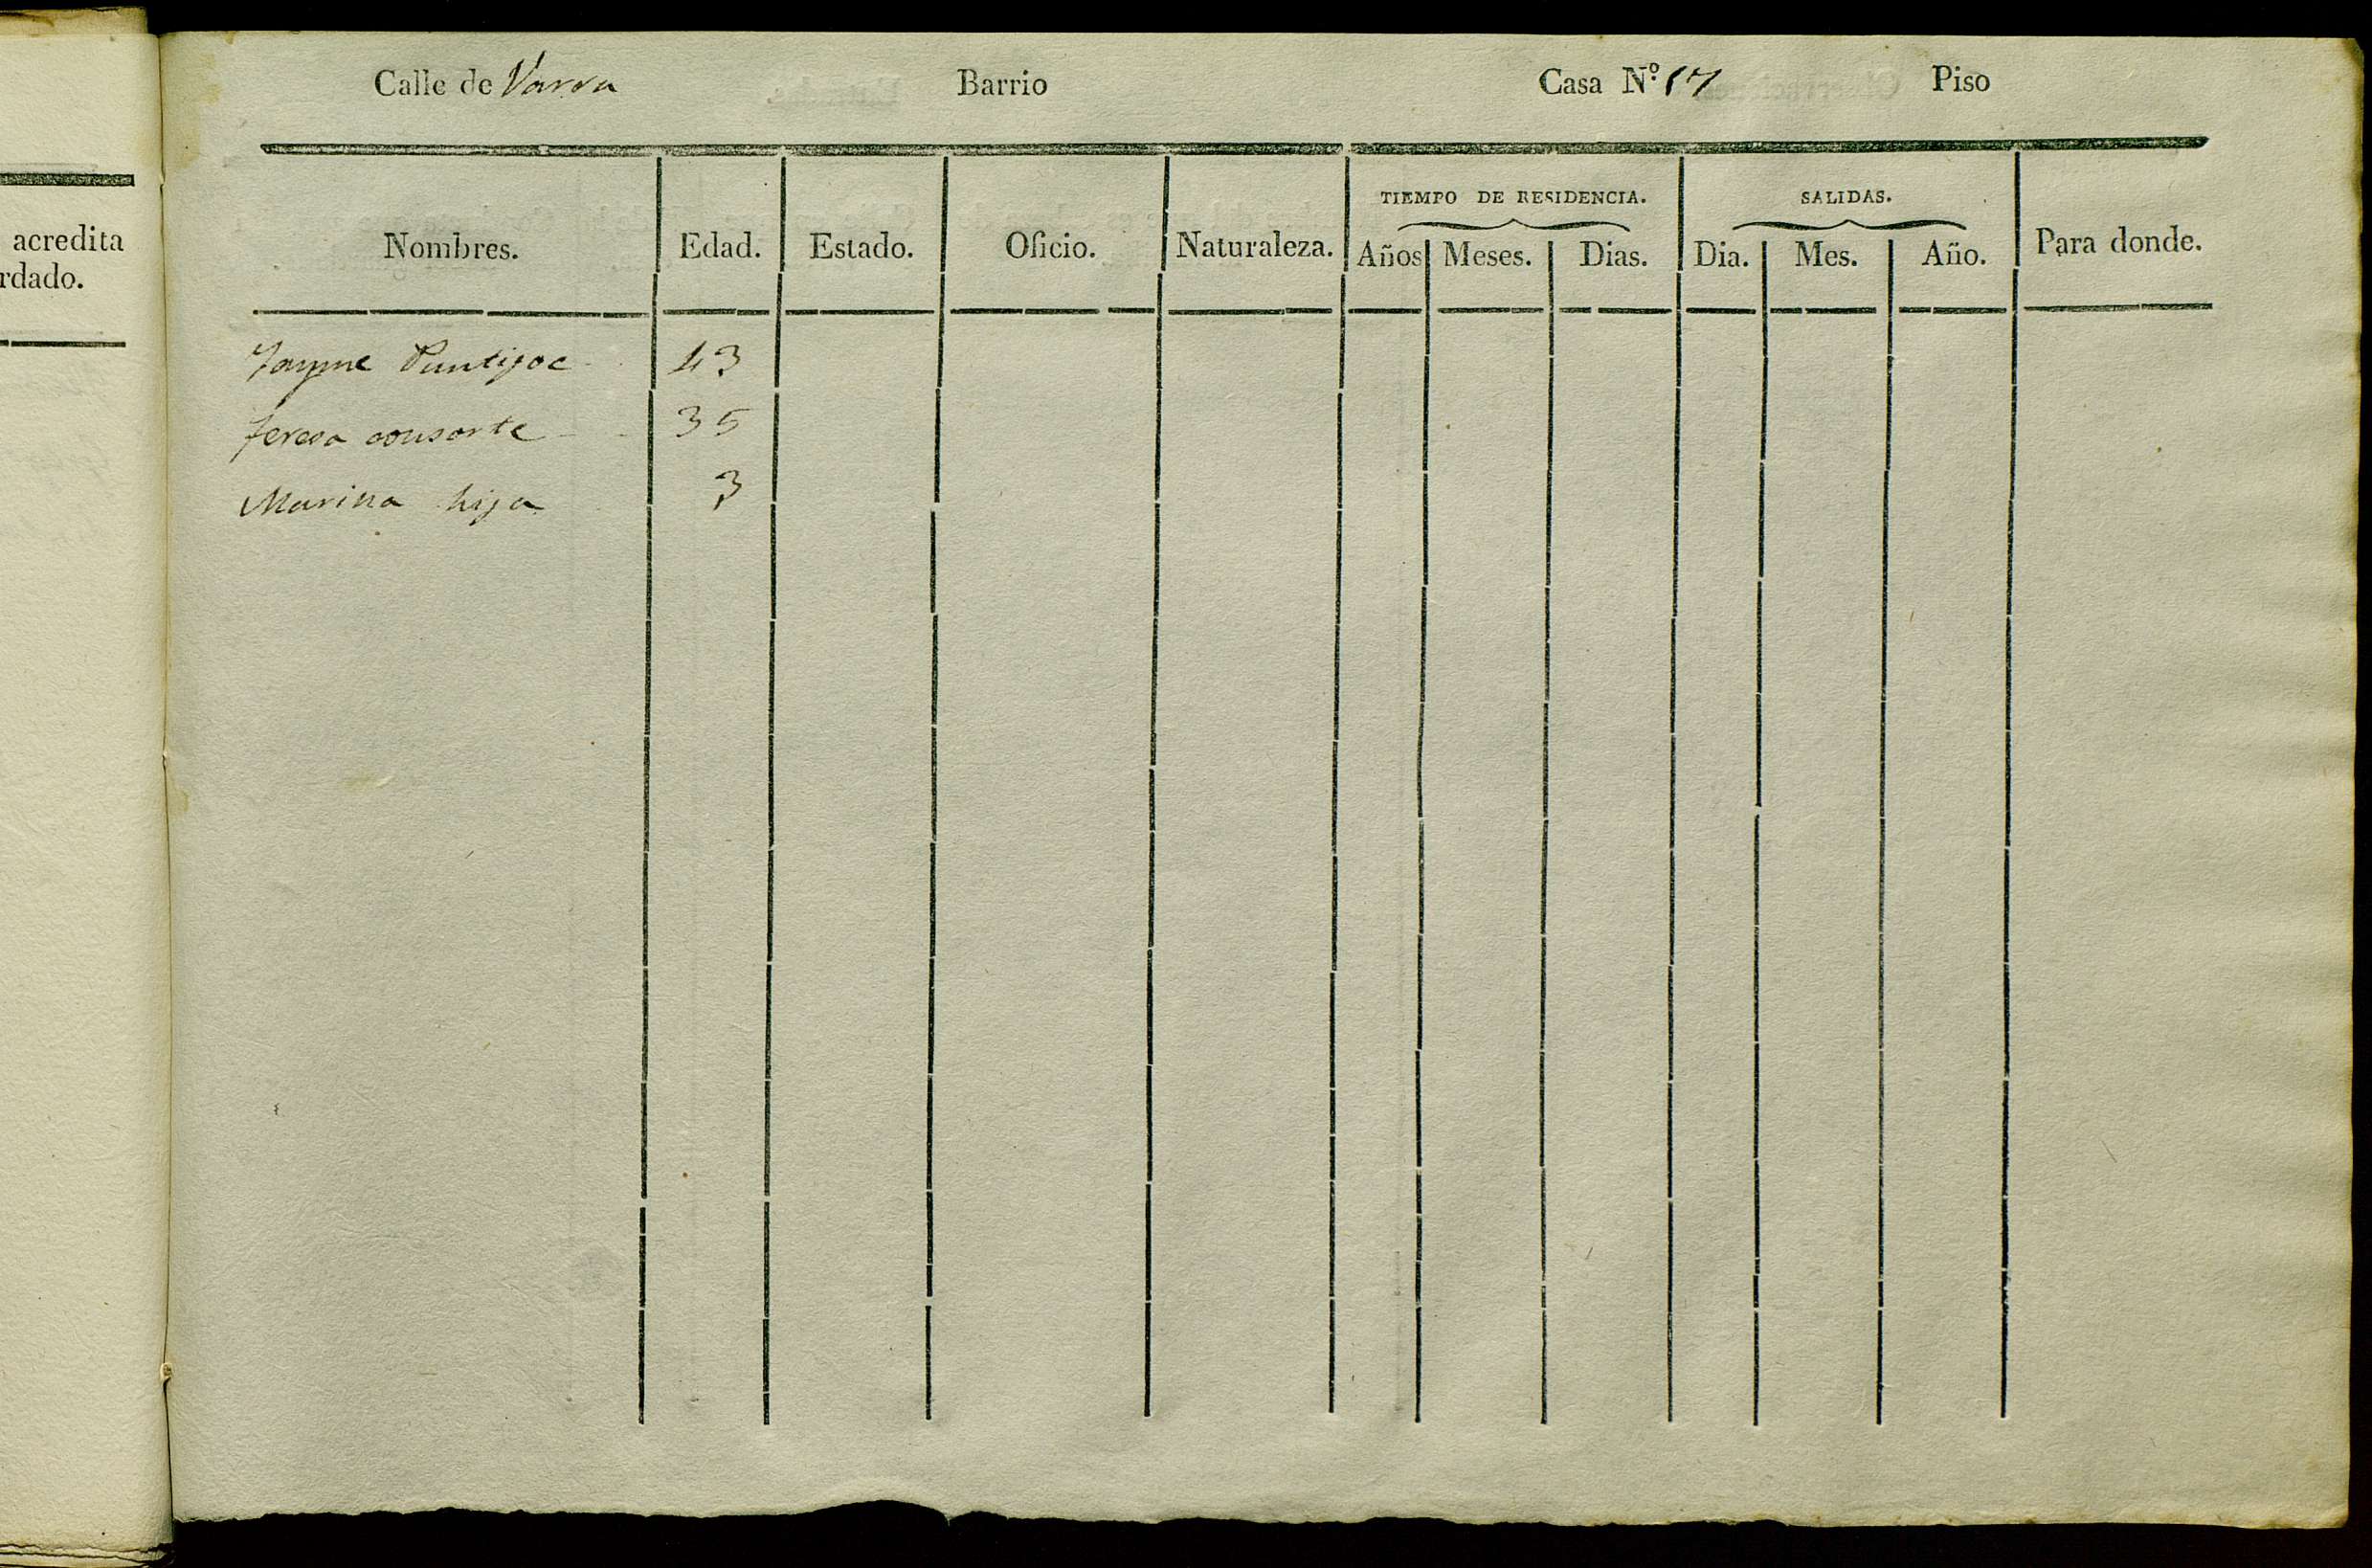 acredita
rdado.
Calle de Varra Barrio Casa N.º 17 Piso
TIEMPO DE RESIDENCIA. SALIDAS.
Nombres. Edad. Estado. Oficio. Naturaleza. Años Meses. Dias. Dia. Mes. Año. Para donde.
Jayme Puntijoc 43
Teresa consorte 35
Marina hija 3